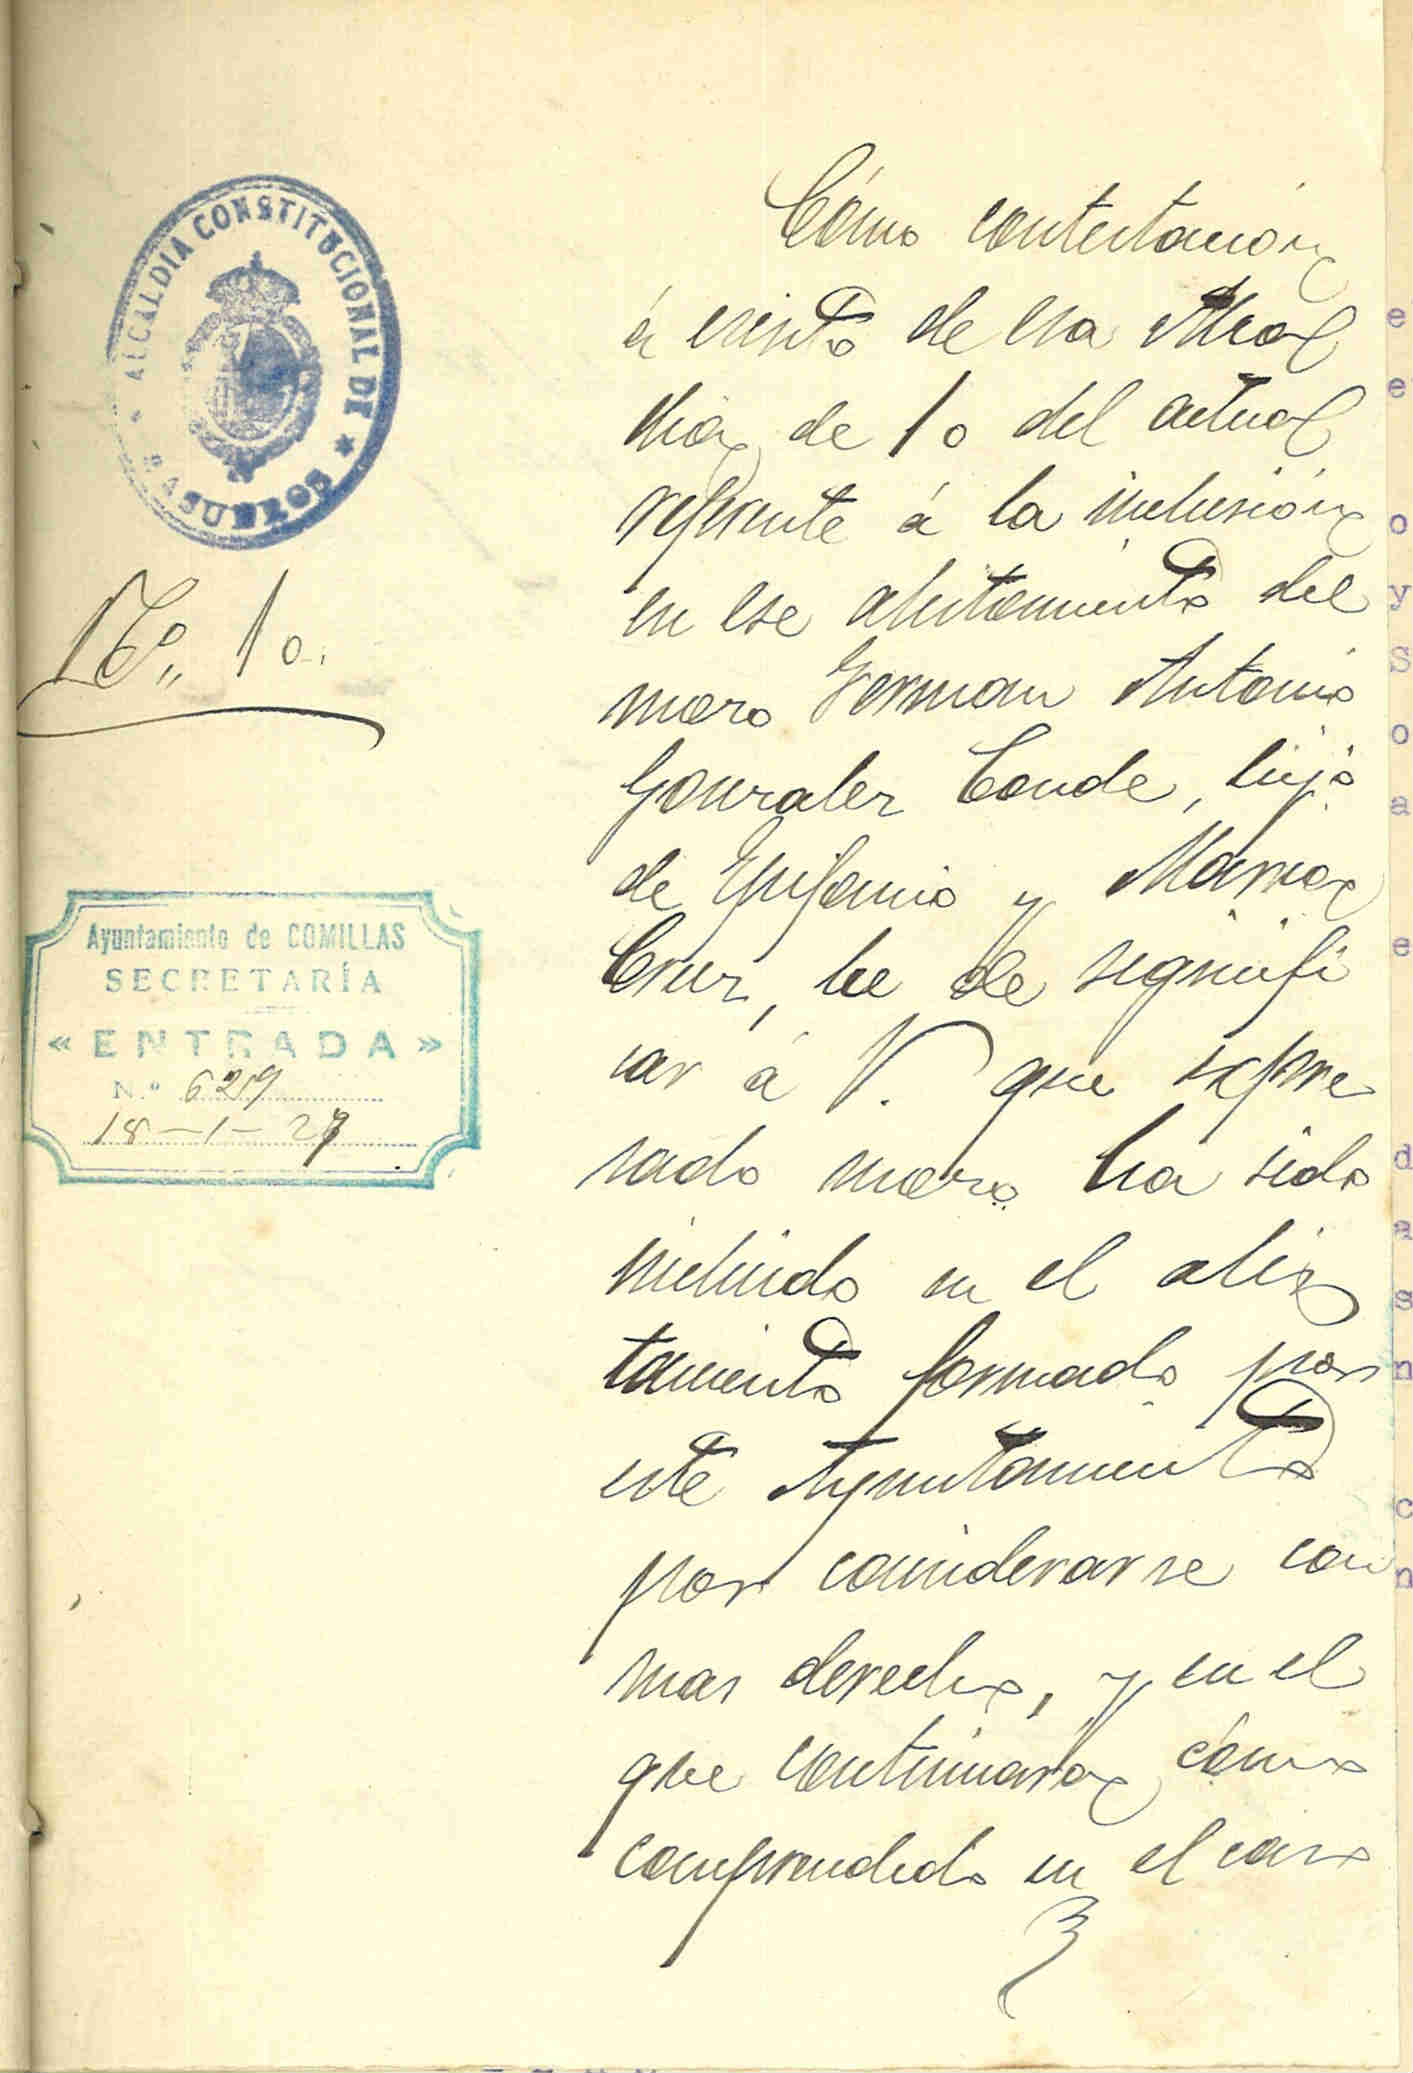 ALCALDIA CONSTITUCIONAL DE
RASUEROS
Nº,, 10.
Ayuntamiento de COMILLAS
SECRETARÍA
« ENTRADA »
N.º 629
18-1-27
Cómo contestación
á escrito de esa Alcal
dia de 10 del actual
referente á la inclusión
en ese alistamiento del
mozo German Antonio
Gonzalez Conde, hijo
de Epifanio y Maria
Cruz, he de signifi
car á V. que expre
sado mozo ha sido
incluido en el alis
tamiento formado por
este Ayuntamiento
por considerarse con
mas derecho, y en el
que continuará cómo
comprendido en el caso